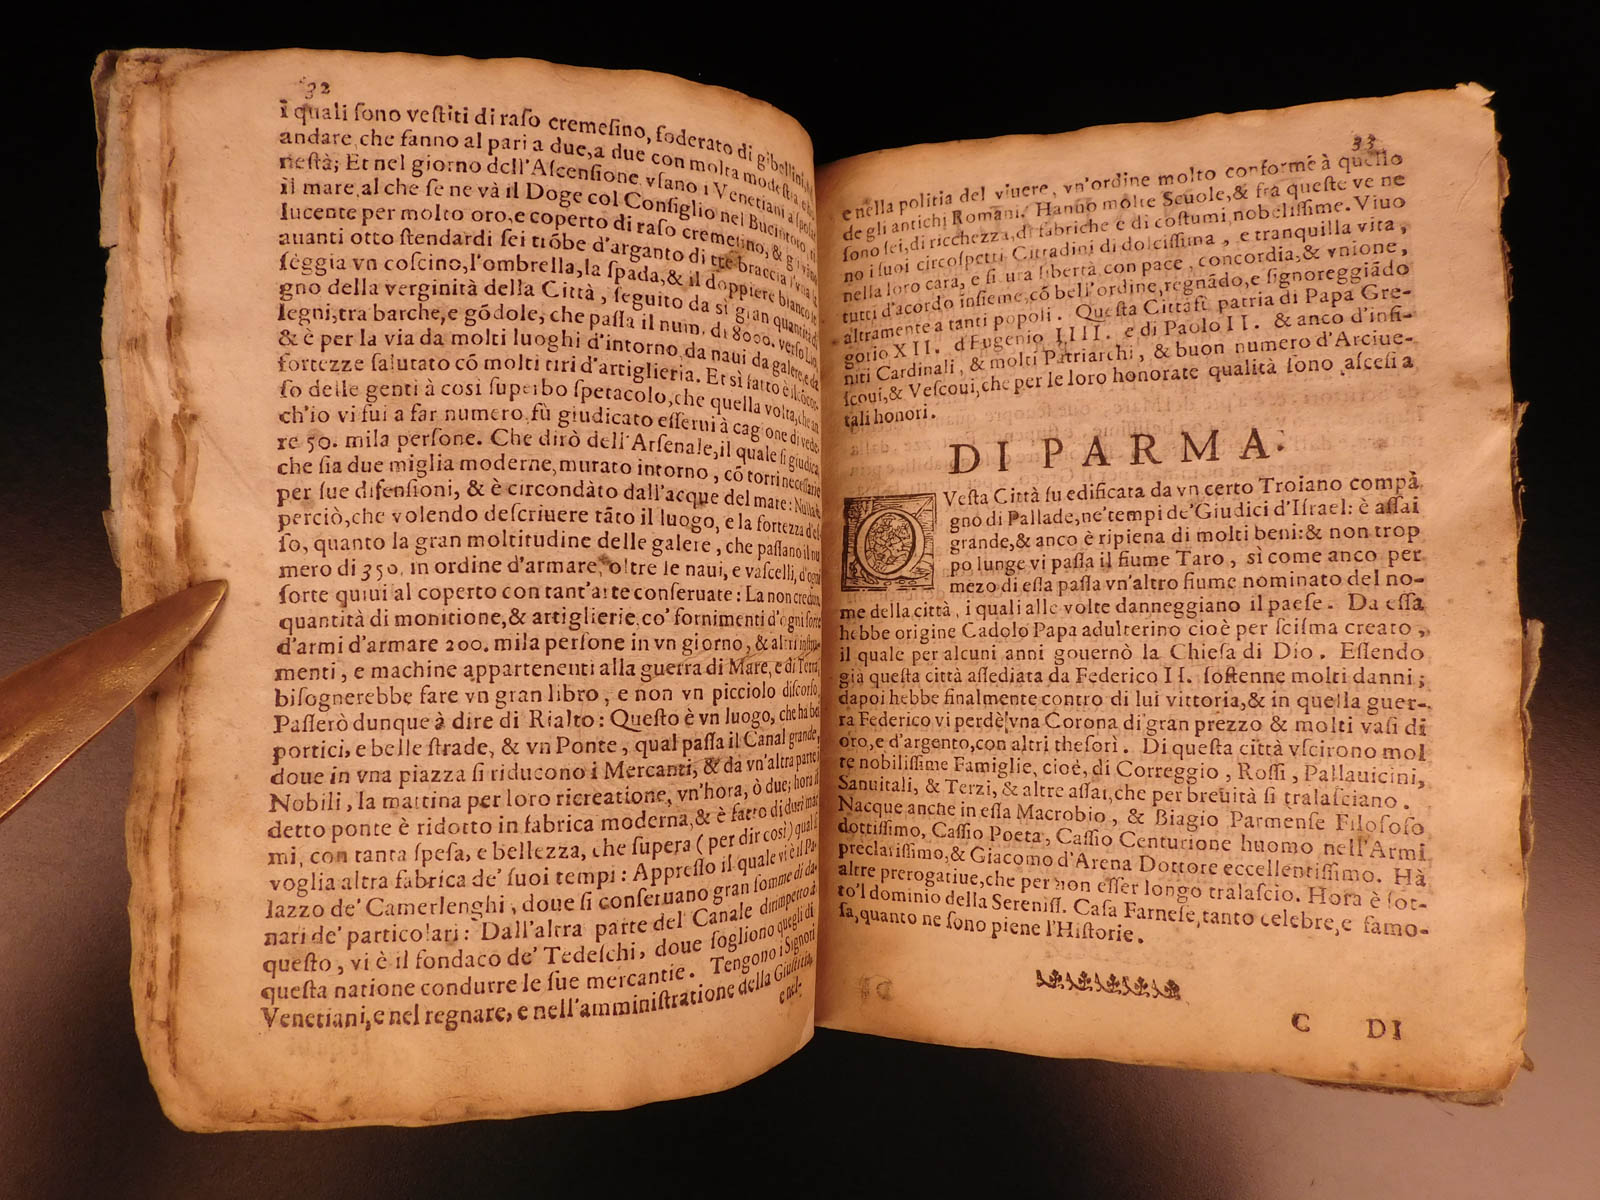 32
i quali ſono veſtiti di raſo cremeſino, foderato di gibellini,
andare, che fanno al pari a due, a due con molta modeſtia, e
neſtà; Et nel giorno dell'Aſcenſione vſano i Venetiani a ſpoſar
il mare, al che ſe ne và il Doge col Conſiglio nel Bucintoro,
lucente per molto oro, e coperto di raſo cremeſino, & gli
auanti otto ſtendardi ſei trōbe d'arganto di tre braccia l'vna la
ſeggia vn coſcino, l'ombrella, la ſpada, & il doppiere bianco
gno della verginità della Città, ſeguito da sì gran quantità di
legni, tra barche, e gódole, che paſſa il num. di 8000. verſo Lio,
& è per la via da molti luoghi d'intorno, da naui da galere, e da
fortezze ſalutato có molti tiri d'artiglieria. Et sì fatto è il cōcor-
ſo delle genti à così ſuperbo ſpetacolo, che quella volta, che an
ch'io vi fui a far numero fù giudicato eſſerui à cagione di vede-
re 50. mila perſone. Che dirò dell'Arſenale, il quale ſi giudica,
che ſia due miglia moderne, murato intorno, cō torri neceſſarie
per ſue difenſioni, & è circondàto dall'acque del mare:
perciò, che volendo deſcriuere tāto il luogo, e la fortezza d'eſ-
ſo, quanto la gran moltitudine delle galere, che paſſano il nu
mero di 350. in ordine d'armare, oltre le naui, e vaſcelli, d'ogni
ſorte quiui al coperto con tant'arte conſeruate: La non creduta
quantità di monitione, & artiglierie co' fornimenti d'ogni ſorte
d'armi d'armare 200. mila perſone in vn giorno, & altri inſtru-
menti, e machine appartenenti alla guerra di Mare, e di Terra,
biſognerebbe fare vn gran libro, e non vn picciolo diſcorſo.
Paſſerò dunque à dire di Rialto: Queſto è vn luogo, che hà bei
portici, e belle ſtrade, & vn Ponte, qual paſſa il Canal grande,
doue in vna piazza ſi riducono i Mercanti, & da vn'altra parte i
Nobili, la mattina per loro ricreatione, vn'hora, ò due; hora il
detto ponte è ridotto in fabrica moderna, & è fatto di duri mar
mi, con tanta ſpeſa, e bellezza, che ſupera (per dir così) qual ſi
voglia altra fabrica de' ſuoi tempi: Appreſſo il quale vi è il Pa-
lazzo de' Camerlenghi, doue ſi conſeruano gran ſomme di da-
nari de' particolari: Dall'altra parte del Canale dirimpetto à
queſto, vi è il fondaco de' Tedeſchi, doue ſogliono quegli di
queſta natione condurre le ſue mercantie. Tengono i Signori
Venetiani, e nel regnare, e nell'amminiſtratione della Giuſtitia,
e nel-
33
e nella politia del viuere, vn'ordine molto conforme à quello
de gli antichi Romani. Hanno molte Scuole, & frà queſte ve ne
ſono ſei, di ricchezza, di fabriche e di coſtumi nobeliſſime. Viuo
no i ſuoi circoſpetti Cittadini di dolciſſima, e tranquilla vita,
nella loro cara, e ſi ura libertà con pace, concordia, & vnione,
tutti d'acordo inſieme, cō bell'ordine, regnādo, e ſignoreggiādo
altramente a tanti popoli. Queſta Città fù patria di Papa Gre-
gorio XII. d'Eugenio IIII. e di Paolo II. & anco d'infi-
niti Cardinali, & molti Patriarchi, & buon numero d'Arciue-
ſcoui, & Veſcoui, che per le loro honorate qualità ſono aſceſi a
tali honori.
DI PARMA.
QVeſta Città fu edificata da vn certo Troiano compà
gno di Pallade, ne' tempi de' Giudici d'Iſrael: è aſſai
grande, & anco è ripiena di molti beni: & non trop
po lunge vi paſſa il fiume Taro, sì come anco per
mezo di eſſa paſſa vn'altro fiume nominato del no-
me della città, i quali alle volte danneggiano il paeſe. Da eſſa
hebbe origine Cadolo Papa adulterino cioè per ſciſma creato,
il quale per alcuni anni gouernò la Chieſa di Dio. Eſſendo
già queſta città aſſediata da Federico II. ſoſtenne molti danni;
dapoi hebbe finalmente contro di lui vittoria, & in quella guer-
ra Federico vi perdè vna Corona di gran prezzo & molti vaſi di
oro, e d'argento, con altri theſori. Di queſta città vſcirono mol
te nobiliſſime Famiglie, cioè, di Correggio, Roſſi, Pallauicini,
Sanuitali, & Terzi, & altre aſſai, che per breuità ſi tralaſciano.
Nacque anche in eſſa Macrobio, & Biagio Parmenſe Filoſofo
dottiſſimo, Caſſio Poeta, Caſſio Centurione huomo nell'Armi
preclariſſimo, & Giacomo d'Arena Dottore eccellentiſſimo. Hà
altre prerogatiue, che per non eſſer longo tralaſcio. Hora è ſot-
to'l dominio della Sereniſſ. Caſa Farneſe, tanto celebre, e famo-
ſa, quanto ne ſono piene l'Hiſtorie.
C DI